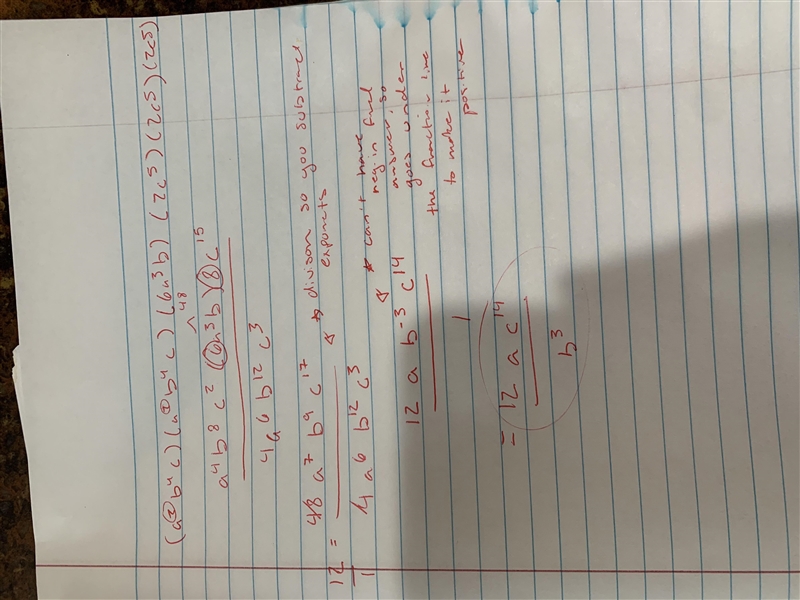 (a²b⁴c)(a²b⁴c)(6a³b)(2c⁵)(2c⁵)(2c⁵)
48
a⁴b⁸c²(6a³b)(8)c¹⁵
4a⁶b¹²c³
12/1 = 48a⁷b⁹c¹⁷ / 4a⁶b¹²c³
divison so you subtract
exponents
12 a b⁻³ c¹⁴
1
can't have
neg in final
answer, so
goes under
the fraction line
to make it
positive
= 12 a c¹⁴
b³